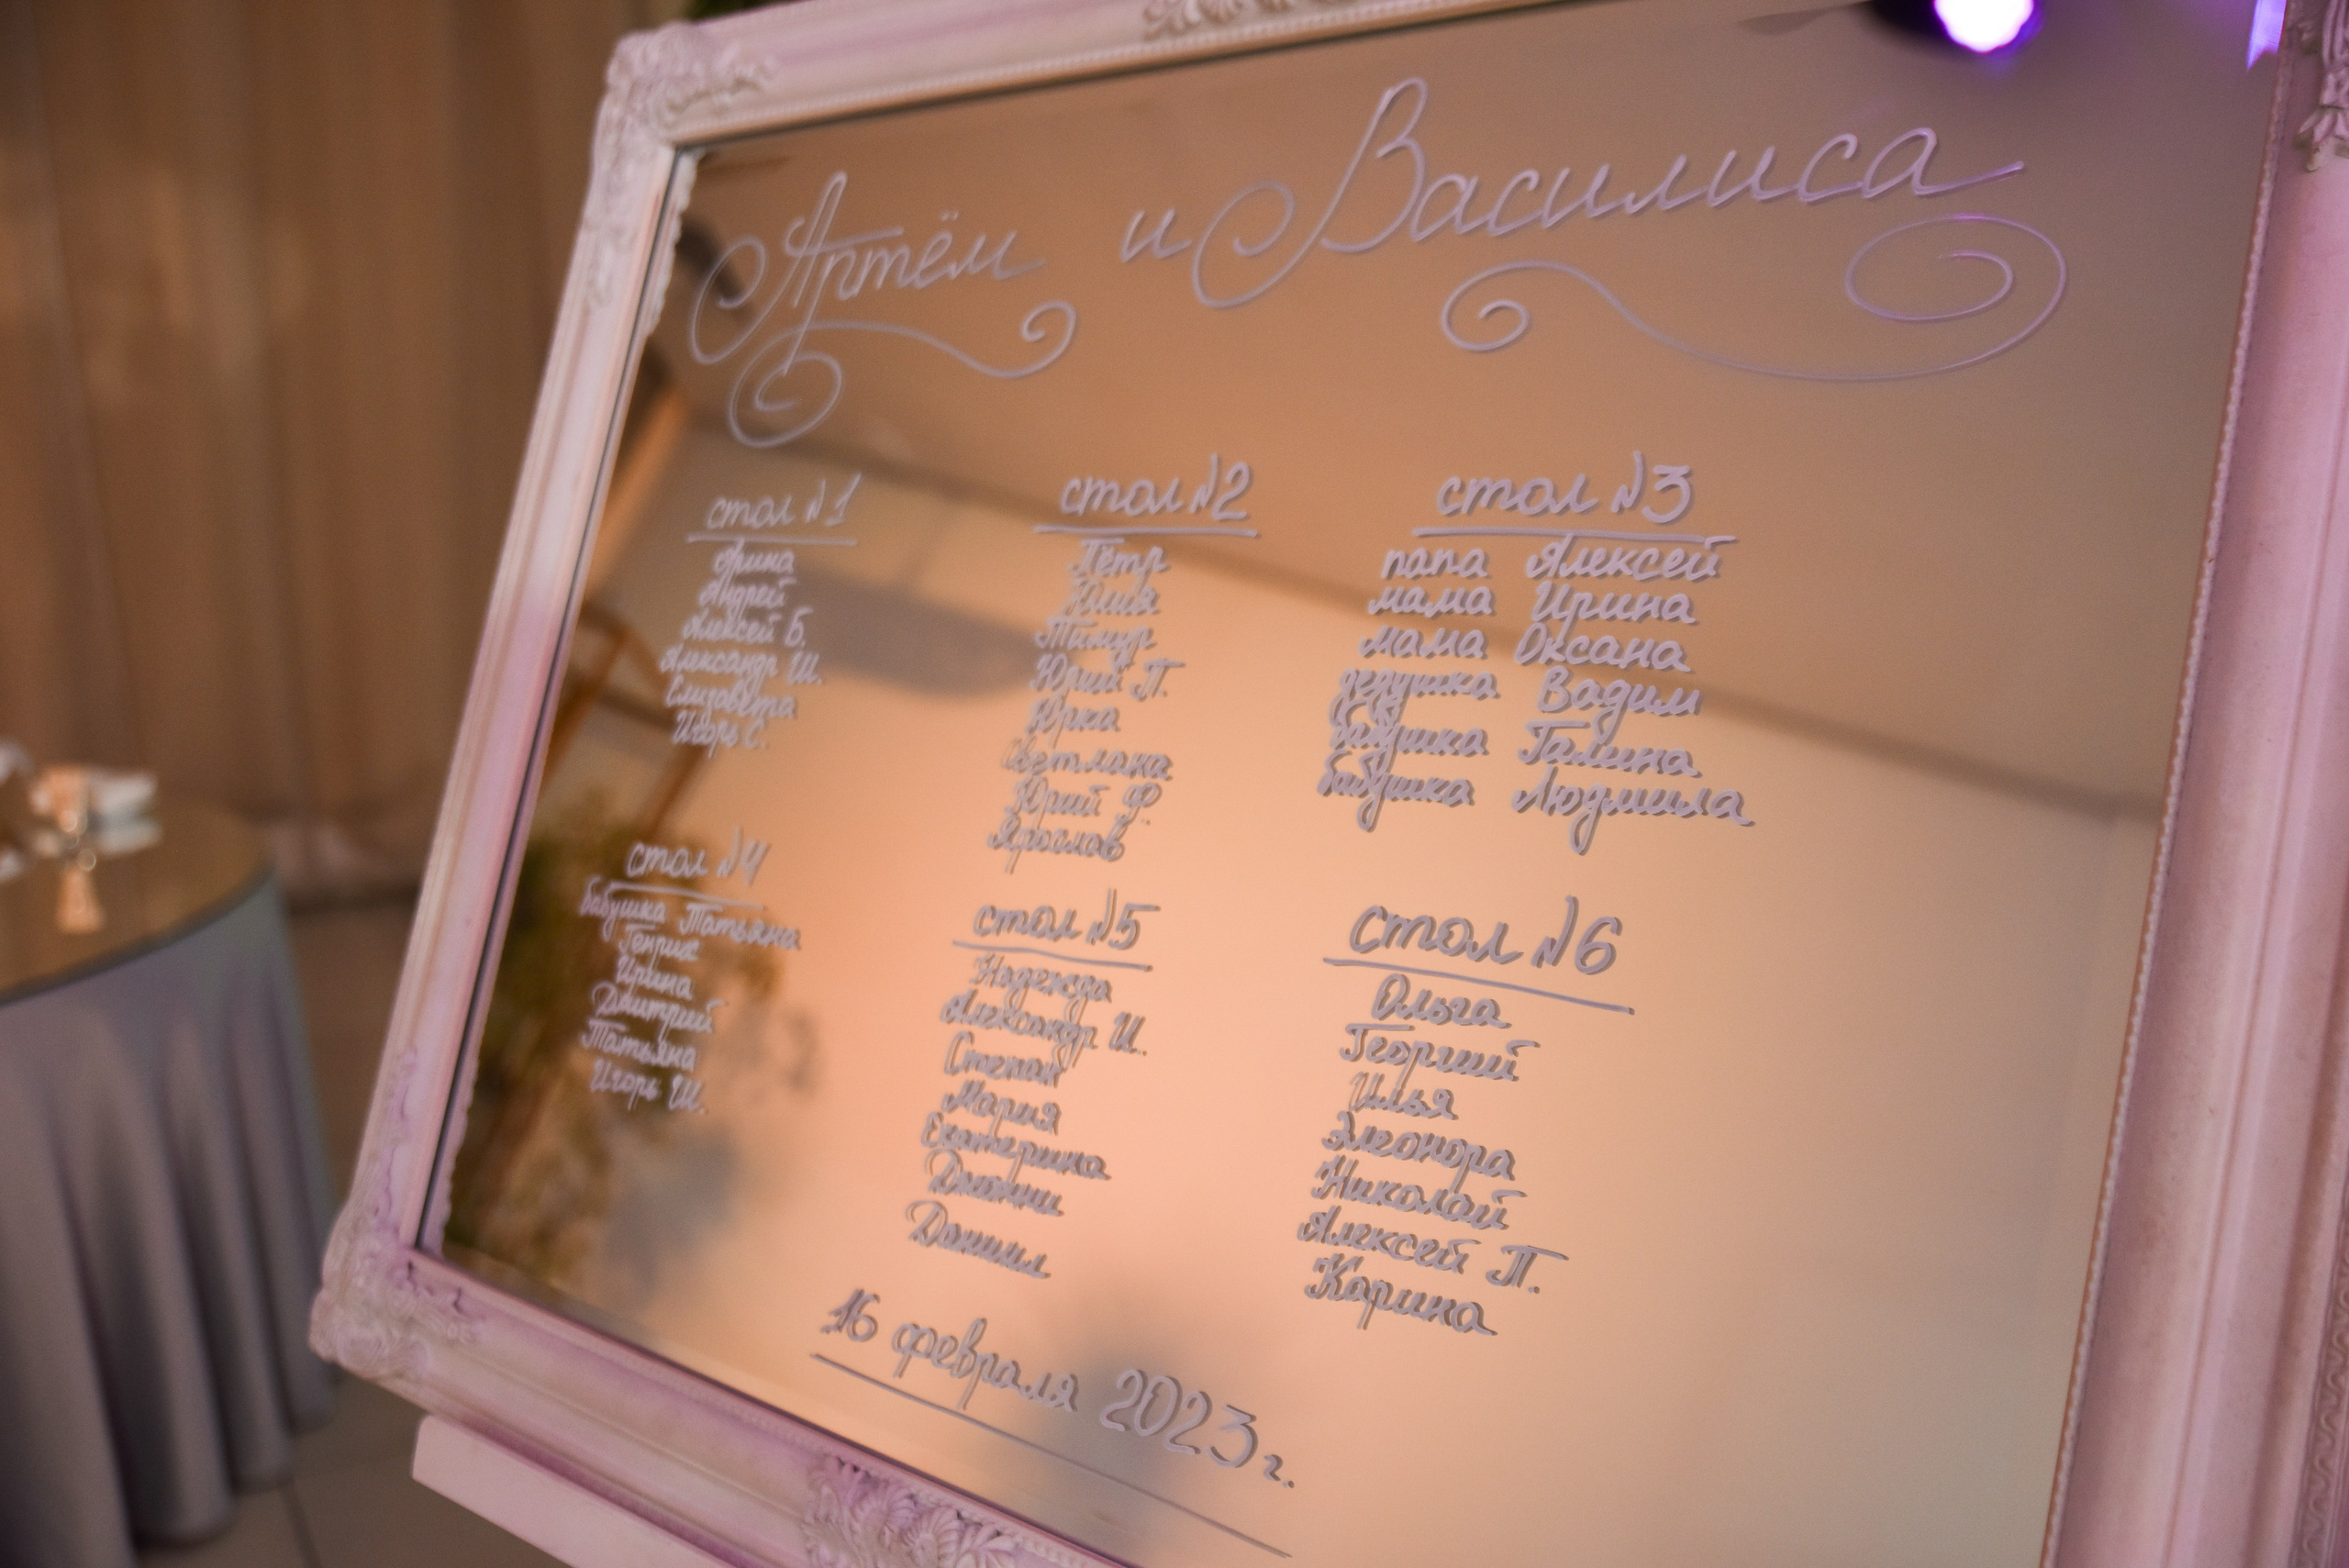 Артём и Василиса
стол №1
Арина
Андрей
Алексей Б.
Александр Ш.
Елизавета
Игорь С.
стол №2
Пётр
Юлия
Тимур
Юрий П.
Юрка
Светлана
Юрий Ф.
Ярослав
стол №3
папа Алексей
мама Ирина
мама Оксана
дедушка Вадим
бабушка Галина
бабушка Людмила
стол №4
бабушка Татьяна
Ирина
Дмитрий
Татьяна
Игорь Ш.
стол №5
Надежда
Александр И.
Степан
Мария
Екатерина
Даниил
стол №6
Ольга
Георгий
Илья
Элеонора
Николай
Алексей П.
Карина
16 февраля 2023 г.